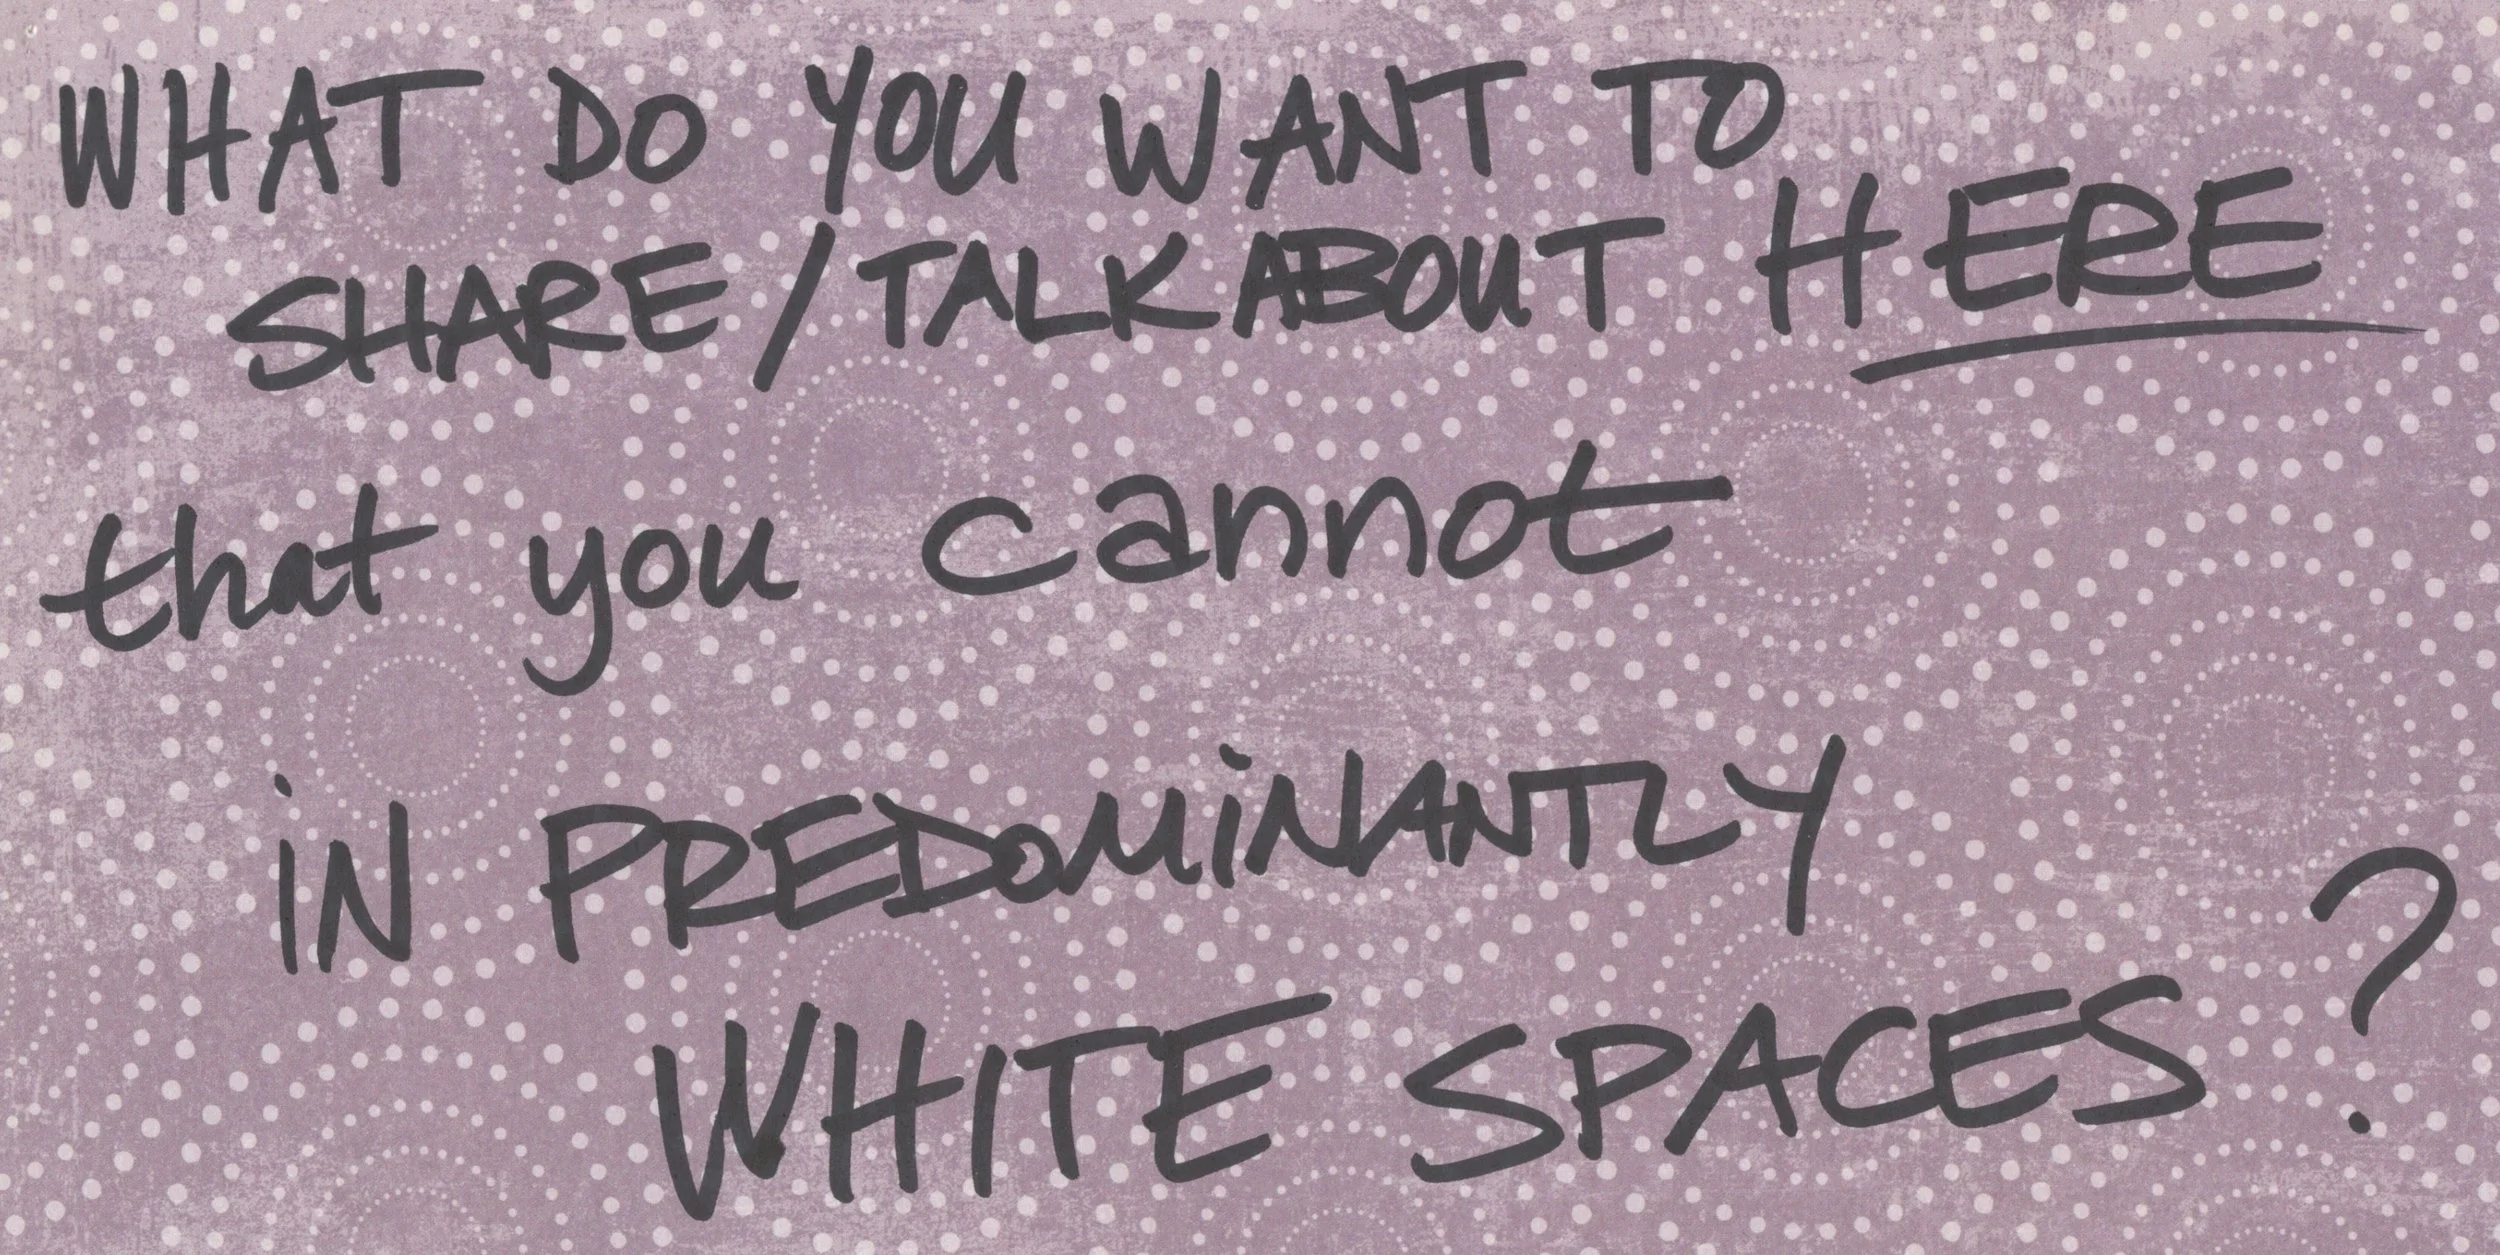 WHAT DO YOU WANT TO
SHARE/TALK ABOUT HERE
that you cannot
iN PREDOMiNANTLY
WHITE SPACES?